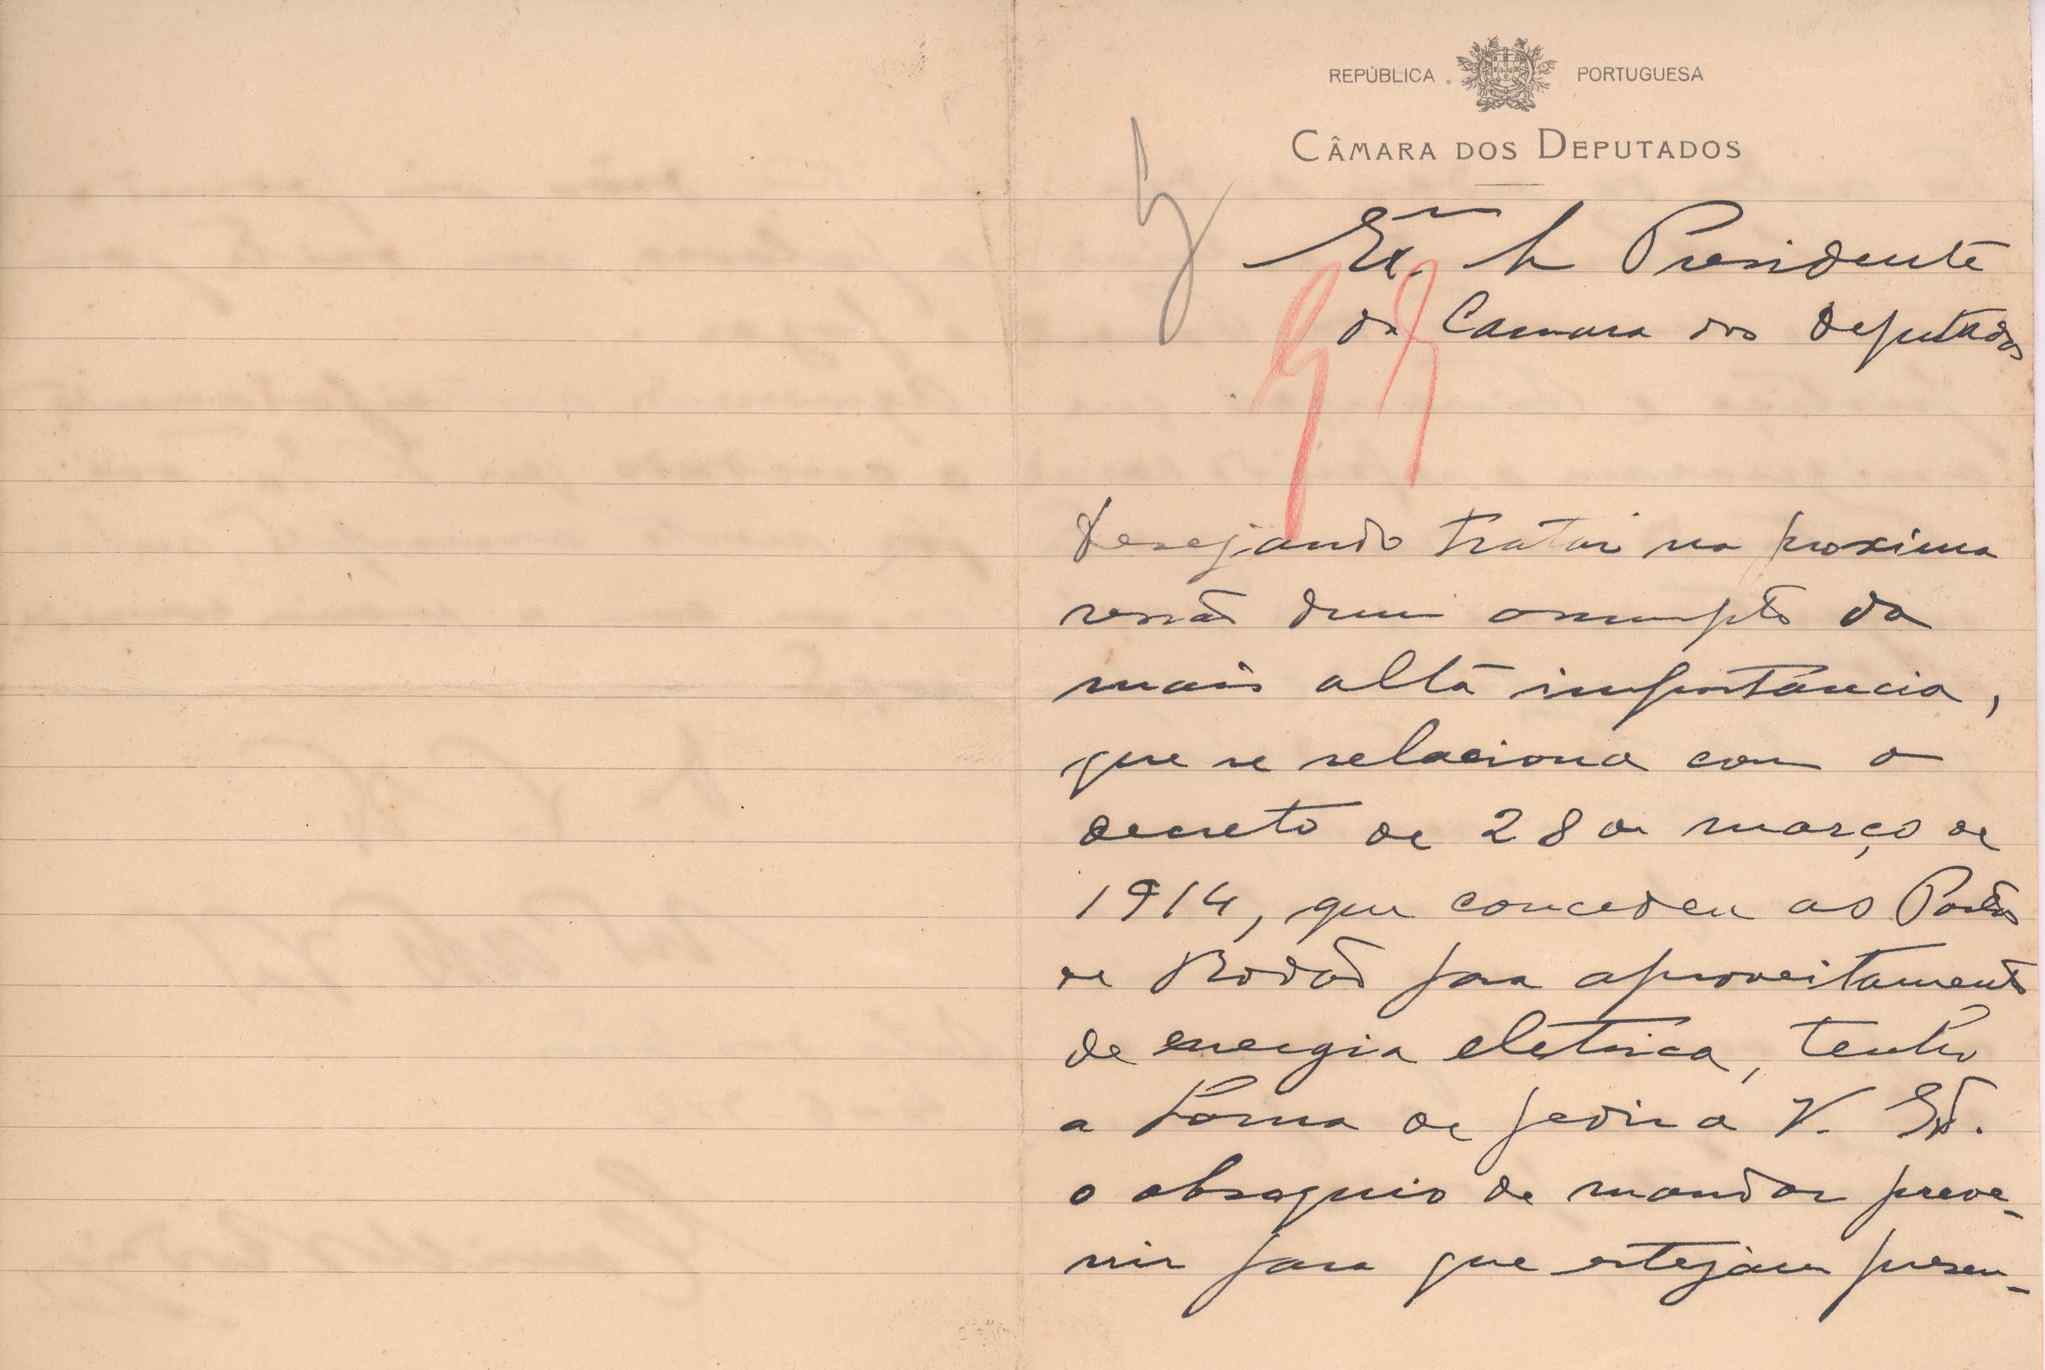 REPÚBLICA PORTUGUESA
CÂMARA DOS DEPUTADOS
Exmo. Sr. Presidente
da Camara dos Deputados
Desejando tratar na proxima
sessão dum assumpto da
mais alta importancia,
que se relaciona com o
decreto de 28 de março de
1914, que concedeu as Portas
de Rodão para aproveitamento
de energia eletrica, tenho
a honra de pedir a V. Exª.
o obsequio de mandar preve-
nir para que estejam presen-